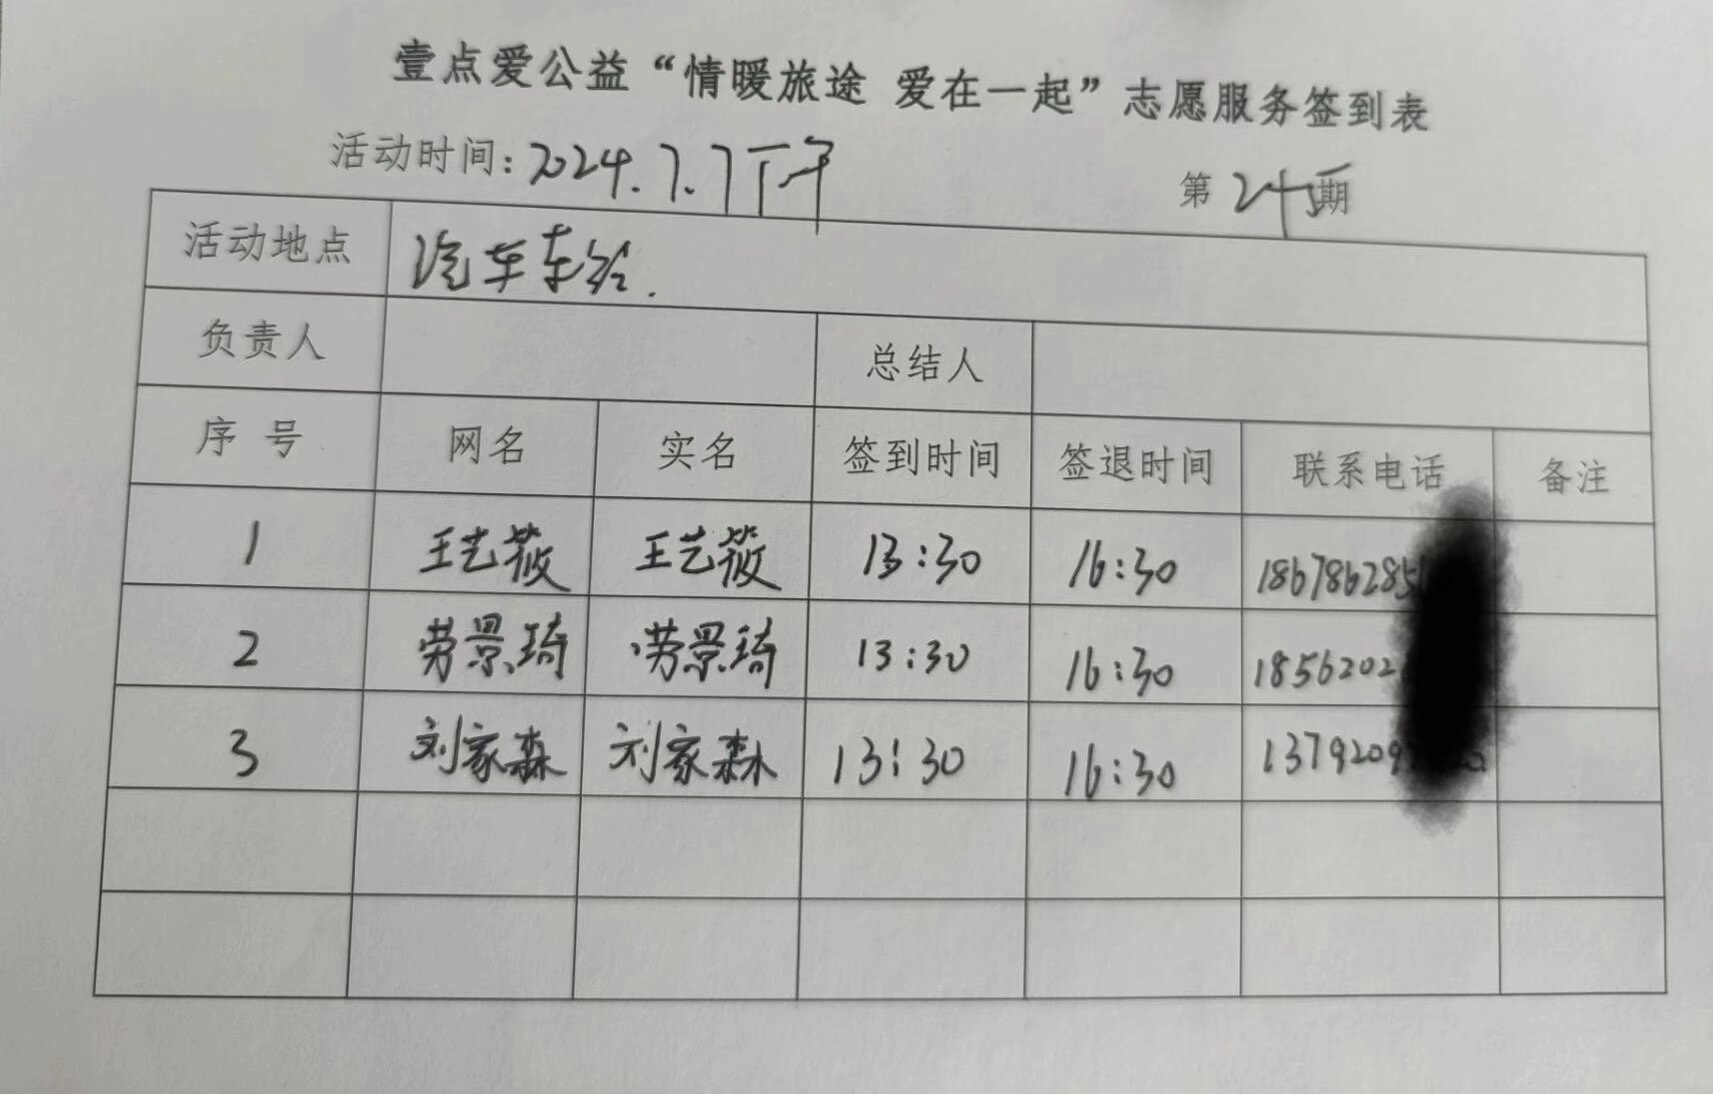 壹点爱公益“情暖旅途 爱在一起”志愿服务签到表
活动时间：2024.7.7下午 第 期
活动地点 汽车车站.
负责人 总结人
序 号 网名 实名 签到时间 签退时间 联系电话 备注
1 王艺筱 王艺筱 13:30 16:30 186786285
2 劳景琦 劳景琦 13:30 16:30 1856202
3 刘家森 刘家森 13:30 16:30 1379209